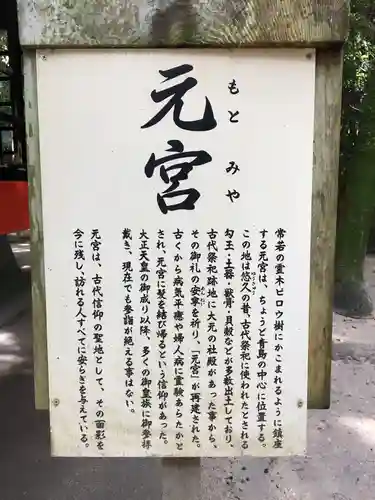 元宮
もとみや
常若の霊木ビロウ樹にかこまれるように鎮座
する元宮は、ちょうど青島の中心に位置する。
この地は悠久の昔、古代祭祀に使われたとされる
勾玉・土器・獣骨・貝殻などが多数出土しており、
古代祭祀跡地に大元の社殿があった事から、
その御礼の安寧を祈り、「元宮」が再建された。
古くから病気平癒や婦人病に霊験あらたかと
され、元宮に髪を結び帰るという信仰があった。
大正天皇の御成り以降、多くの御皇族に御参拝
戴き、現在でも参詣が絶える事はない。
元宮は、古代信仰の聖地として、その面影を
今に残し、訪れる人すべてに安らぎを与えている。